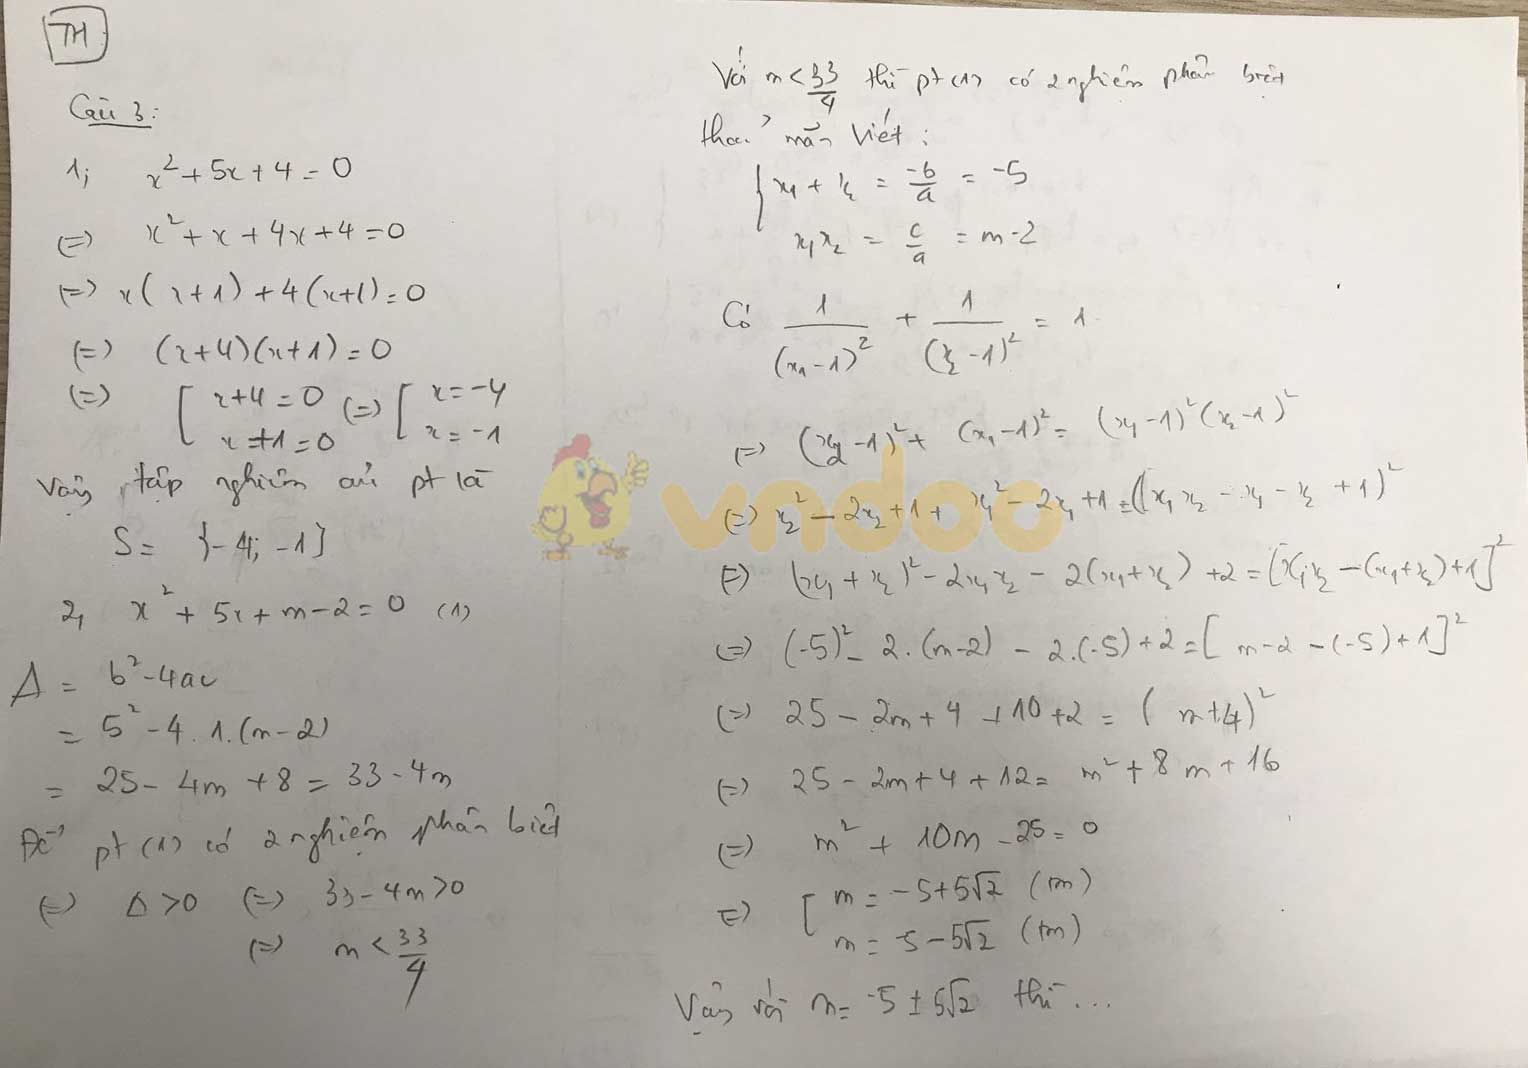 TH
Câu 3:
1; x² + 5x + 4 = 0
(=) x² + x + 4x + 4 = 0
(=) x(x+1) + 4(x+1) = 0
(=) (x+4)(x+1) = 0
(=) [ x+4 = 0 (=) [ x = -4
x+1 = 0 x = -1
Vậy tập nghiệm của pt là
S = {-4; -1}
2, x² + 5x + m - 2 = 0 (1)
Δ = b² - 4ac
= 5² - 4.1.(m-2)
= 25 - 4m + 8 = 33 - 4m
Để pt (1) có 2 nghiệm phân biệt
(=) Δ > 0 (=) 33 - 4m > 0
(=) m < 33/4
Với m < 33/4 thì pt (1) có 2 nghiệm phân biệt
thoả mãn Viét:
{ x₁ + x₂ = -b/a = -5
x₁x₂ = c/a = m-2
Có 1/(x₁-1)² + 1/(x₂-1)² = 1
(=) (x₂-1)² + (x₁-1)² = (x₁-1)²(x₂-1)²
(=) x₂² - 2x₂ + 1 + x₁² - 2x₁ + 1 = (x₁x₂ - x₁ - x₂ + 1)²
(=) (x₁ + x₂)² - 2x₁x₂ - 2(x₁+x₂) + 2 = [x₁x₂ - (x₁+x₂) + 1]²
(=) (-5)² - 2.(m-2) - 2.(-5) + 2 = [m-2 - (-5) + 1]²
(=) 25 - 2m + 4 + 10 + 2 = (m+4)²
(=) 25 - 2m + 4 + 12 = m² + 8m + 16
(=) m² + 10m - 25 = 0
(=) [ m = -5 + 5√2 (tm)
m = -5 - 5√2 (tm)
Vậy với m = -5 ± 5√2 thì ...
vndoo